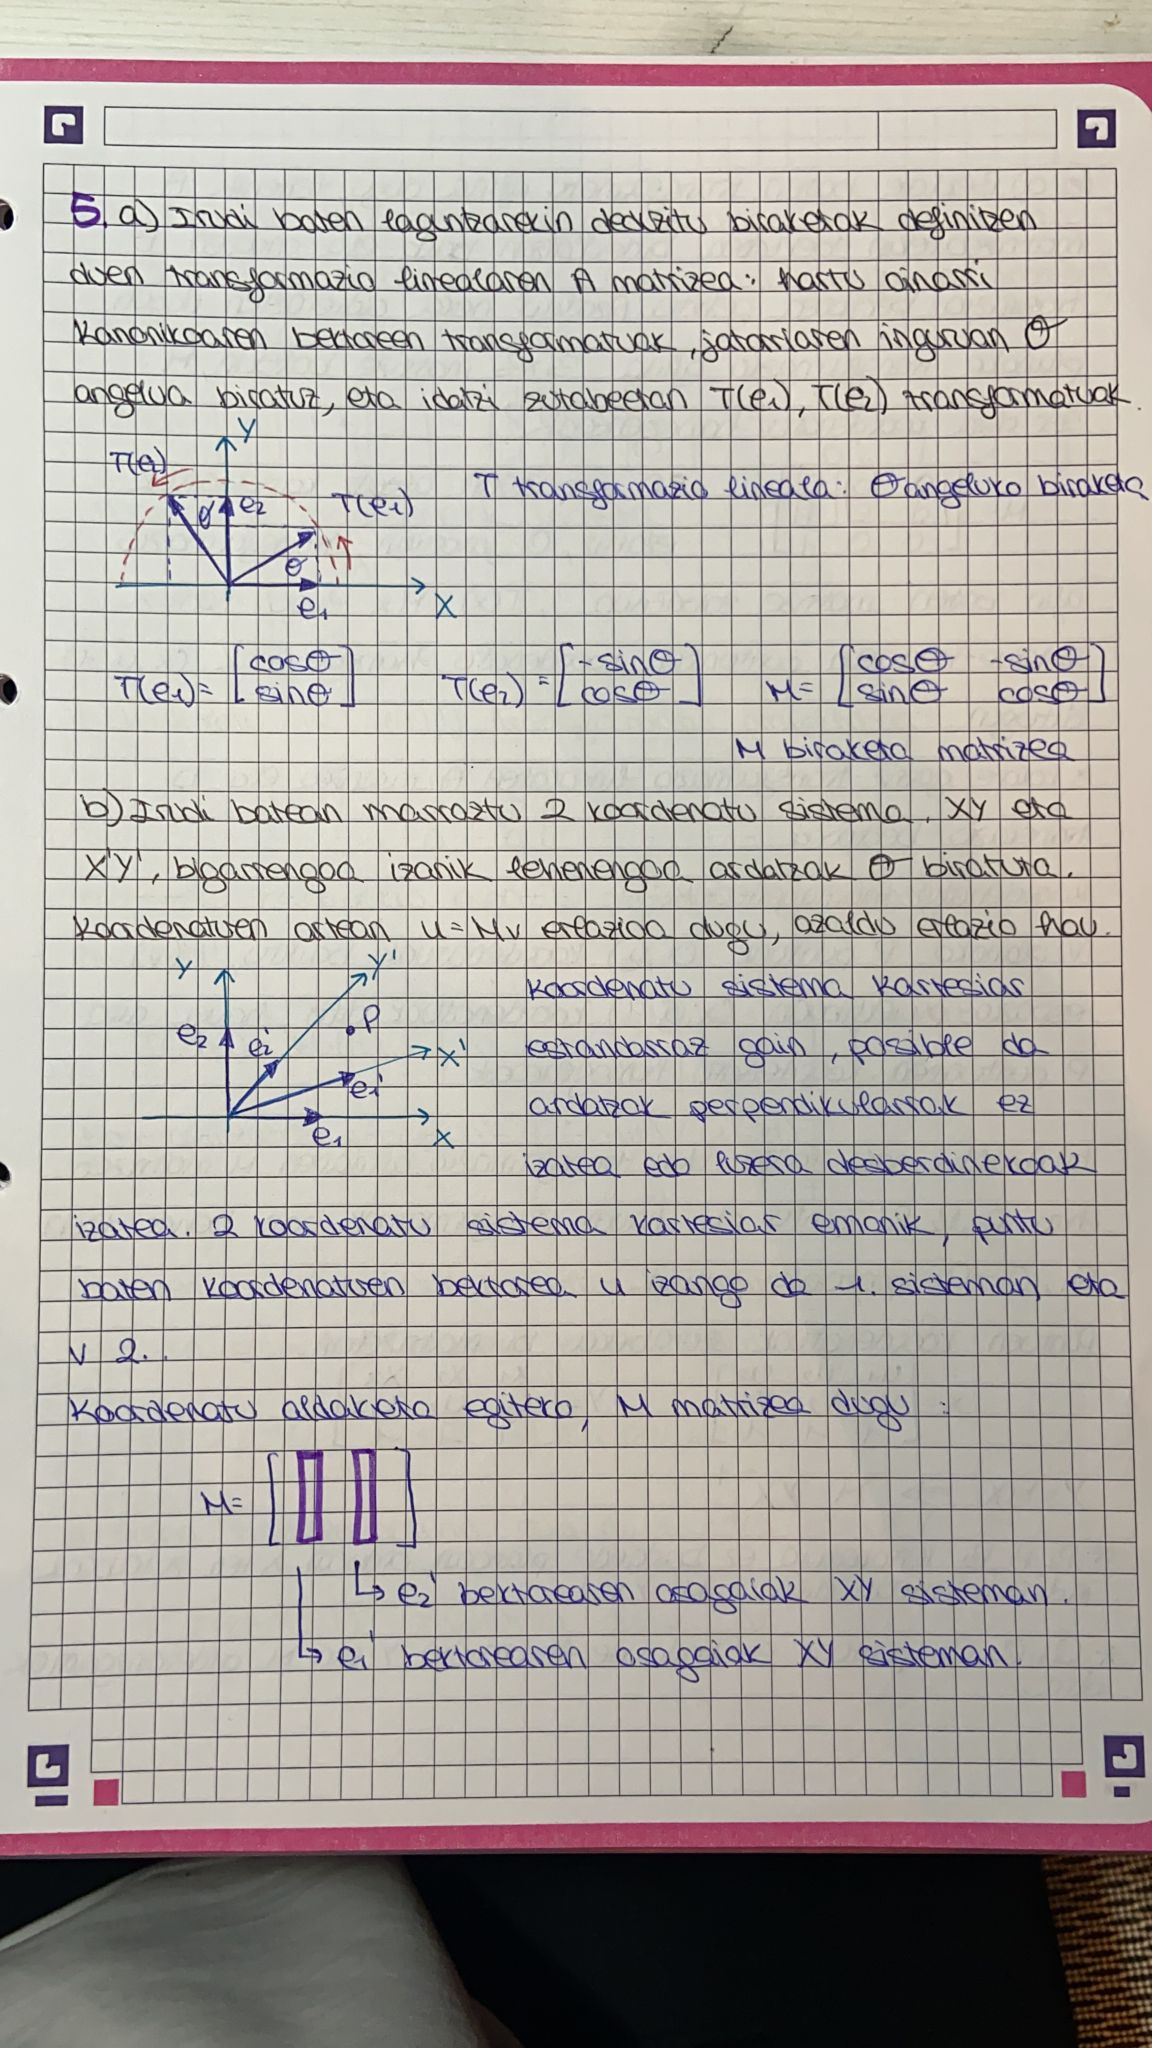 5. a) Irudi baten laguntzarekin deduzitu biraketak definitzen
duen transformazio linealaren A matrizea: hartu oinarri
kanonikoaren bektoreen transformatuak, jatorriaren inguruan θ
angelua biratuz, eta idatzi zutabeetan T(e₁), T(e₂) transformatuak.
Y
T(e₂)
θ e₂ T(e₁)
T transformazio lineala: θ angeluko biraketa
θ
e₁ X
T(e₁) = [cosθ sinθ] T(e₂) = [-sinθ cosθ] M = [cosθ -sinθ
sinθ cosθ]
M biraketa matrizea
b) Irudi batean marraztu 2 koordenatu sistema, XY eta
X'Y', bigarrengoa izanik lehenengoa ardatzak θ biratuta.
Koordenatuen artean u = Mv erlazioa dugu, azaldu erlazio hau.
Y Y'
e₂ e₂' P
X'
e₁'
e₁ X
Koordenatu sistema kartesiar
estandarraz gain, posible da
ardatzak perpendikularrak ez
izatea edo luzera desberdinekoak
izatea. 2 koordenatu sistema kartesiar emanik, puntu
baten koordenatuen bektorea u izango da 1. sisteman eta
v 2..
Koordenatu aldaketa egiteko, M matrizea dugu:
M = [ ]
↳ e₂' bektorearen osagaiak XY sisteman.
↳ e₁' bektorearen osagaiak XY sisteman.